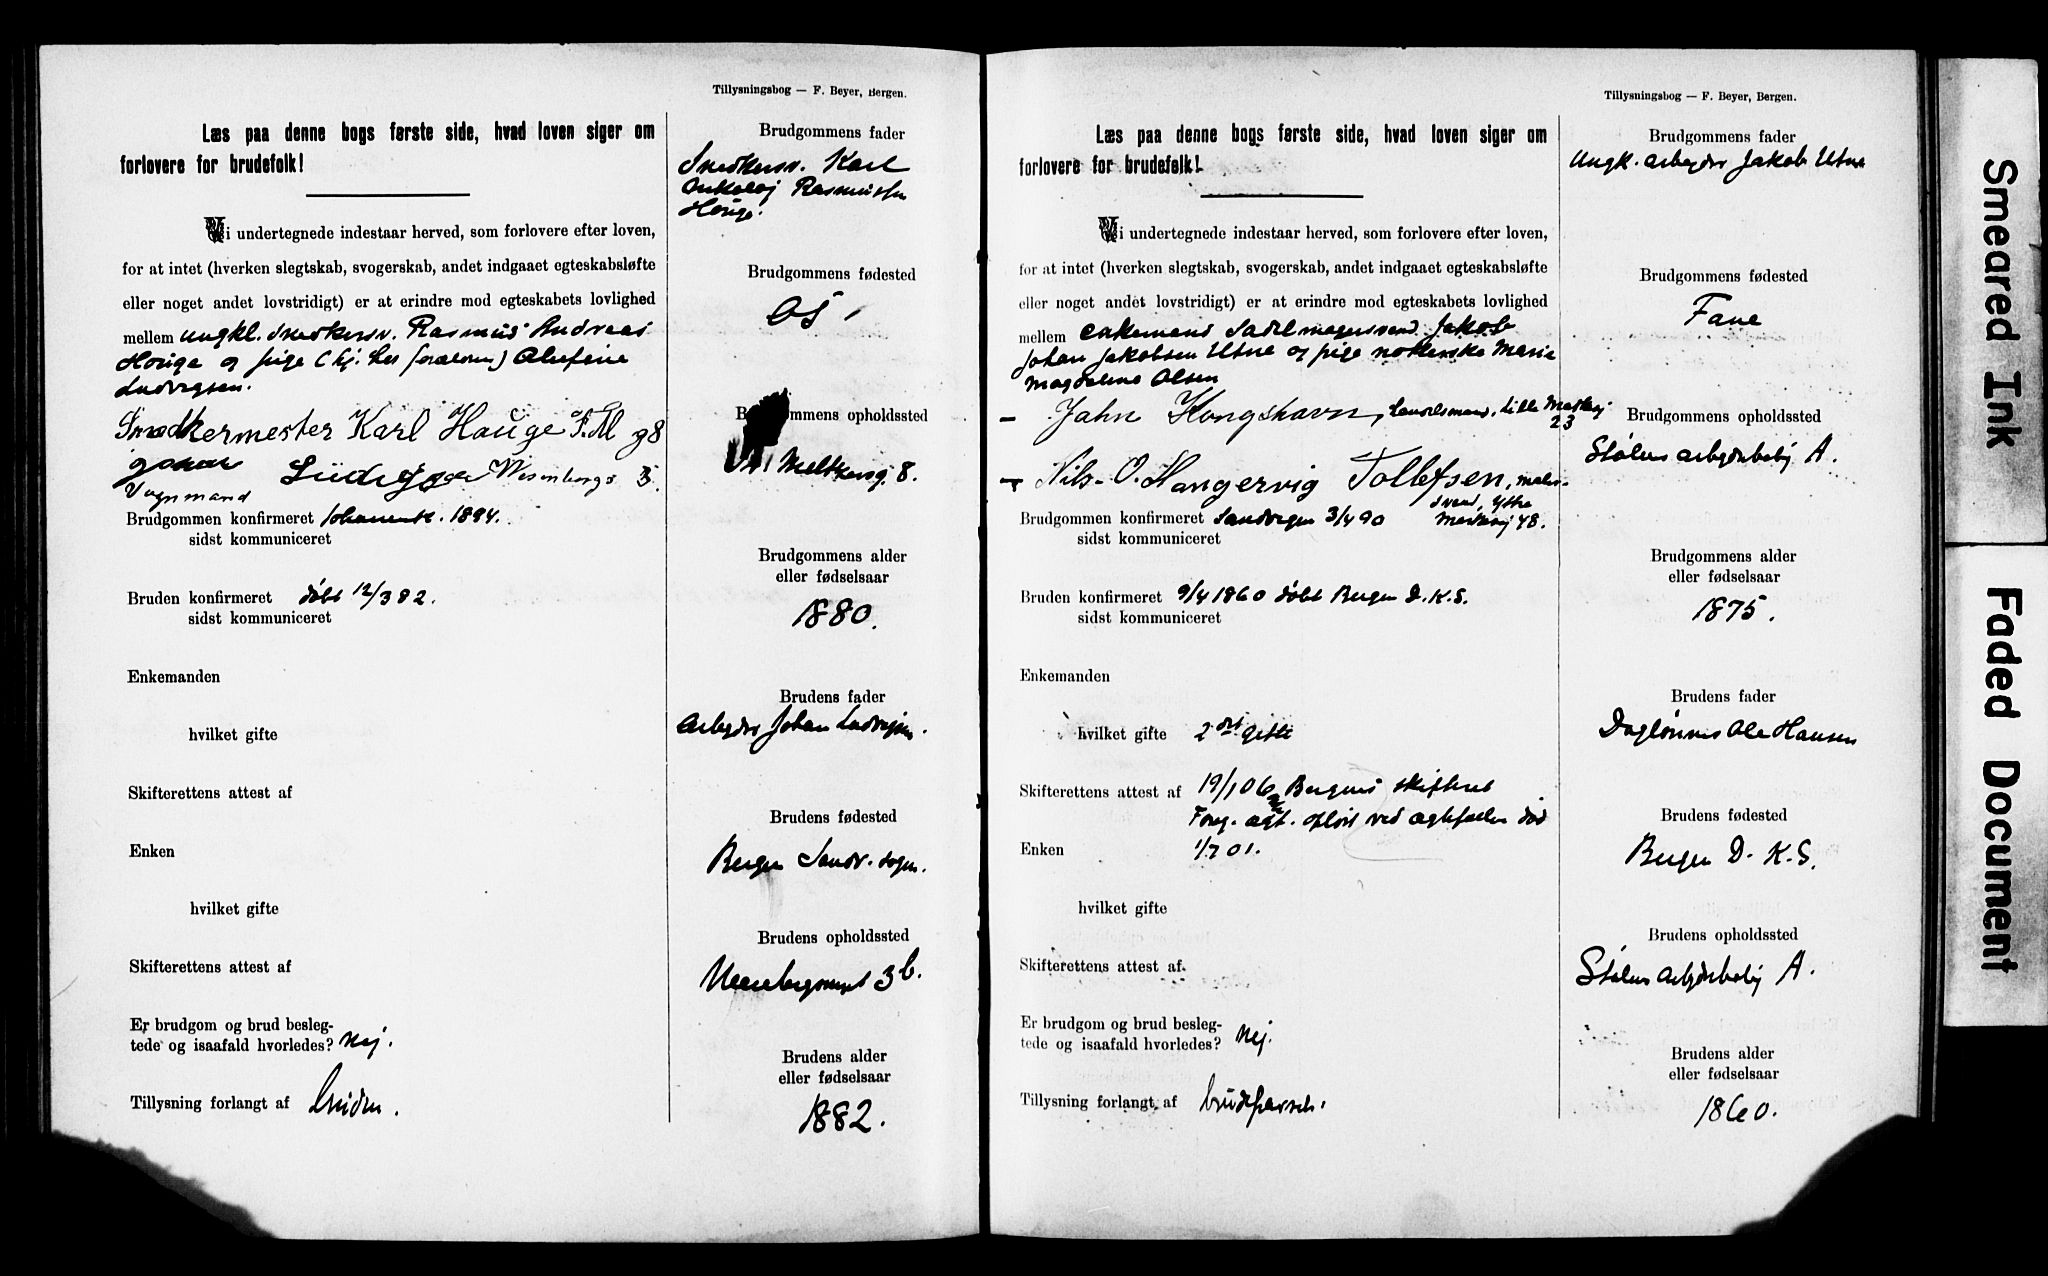 Tillysningsbog — F. Beyer, Bergen.
Læs paa denne bogs første side, hvad loven siger om
forlovere for brudefolk!
Vi undertegnede indestaar herved, som forlovere efter loven,
for at intet (hverken slegtskab, svogerskab, andet indgaaet egteskabsløfte
eller noget andet lovstridigt) er at erindre mod egteskabets lovlighed
mellem ungkl. snedkersv. Rasmus Andreas
Houge og pige (hj. hos forældren)
Ludvigsen.
Snedkermester Karl Hauge
Johan
Vognmand
Brudgommen konfirmeret Johannesk. 1894.
sidst kommuniceret
Bruden konfirmeret døbt 12/3 82.
sidst kommuniceret
Enkemanden
hvilket gifte
Skifterettens attest af
Enken
hvilket gifte
Skifterettens attest af
Er brudgom og brud besleg-
tede og isaafald hvorledes? Nej.
Tillysning forlangt af bruden.
Brudgommens fader
Snedkersv. Karl
Nikolaj Rasmussen
Houge.
Brudgommens fødested
Os
Brudgommens opholdssted
8.
Brudgommens alder
eller fødselsaar
1880.
Brudens fader
Arbejder Johan Ludvigsen.
Brudens fødested
Bergen Sandv. sogn.
Brudens opholdssted
3b.
Brudens alder
eller fødselsaar
1882.
Tillysningsbog — F. Beyer, Bergen.
Læs paa denne bogs første side, hvad loven siger om
forlovere for brudefolk!
Vi undertegnede indestaar herved, som forlovere efter loven,
for at intet (hverken slegtskab, svogerskab, andet indgaaet egteskabsløfte
eller noget andet lovstridigt) er at erindre mod egteskabets lovlighed
mellem enkemand Sadelmagersvend Jakob
Johan Jakobsen Utne og pige Marie
Magdalene Olsen
— Jahn Kongshavn, Lille Markvej
23
— Nils O. Hangervig Tollefsen, maler-
svend, Ytre
Markvej 48.
Brudgommen konfirmeret Sandvigen 3/4 90
sidst kommuniceret
Bruden konfirmeret 9/4 1860 døbt Bergen D. K. S.
sidst kommuniceret
Enkemanden
hvilket gifte 2det gifte
Skifterettens attest af 19/1 06 Bergens skifteret
Foreg. ægt. opløst ved ægtefælles død
Enken 1/7 01.
hvilket gifte
Skifterettens attest af
Er brudgom og brud besleg-
tede og isaafald hvorledes? Nej.
Tillysning forlangt af brudeparret.
Brudgommens fader
Ungk. arbejder Jakob Utne
Brudgommens fødested
Fane
Brudgommens opholdssted
Stølens arbejderbolig A.
Brudgommens alder
eller fødselsaar
1875.
Brudens fader
Daglønner Ole Hansen
Brudens fødested
Bergen D. K. S.
Brudens opholdssted
Stølens arbejderbolig A.
Brudens alder
eller fødselsaar
1860.
Smeared Ink
Faded Document